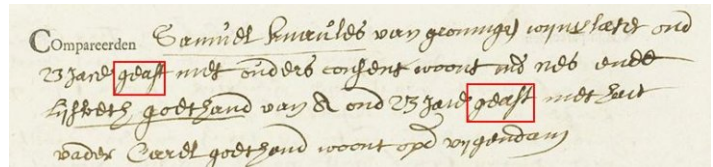 Compareerden Samuel knaules van groninge wijnverlater oud
23 Jare geast met ouders consent woont inde nes ende
lijsbeth goethand van A oud 23 Jare geast met haer
vader Carel goethand woont opd vijgendam